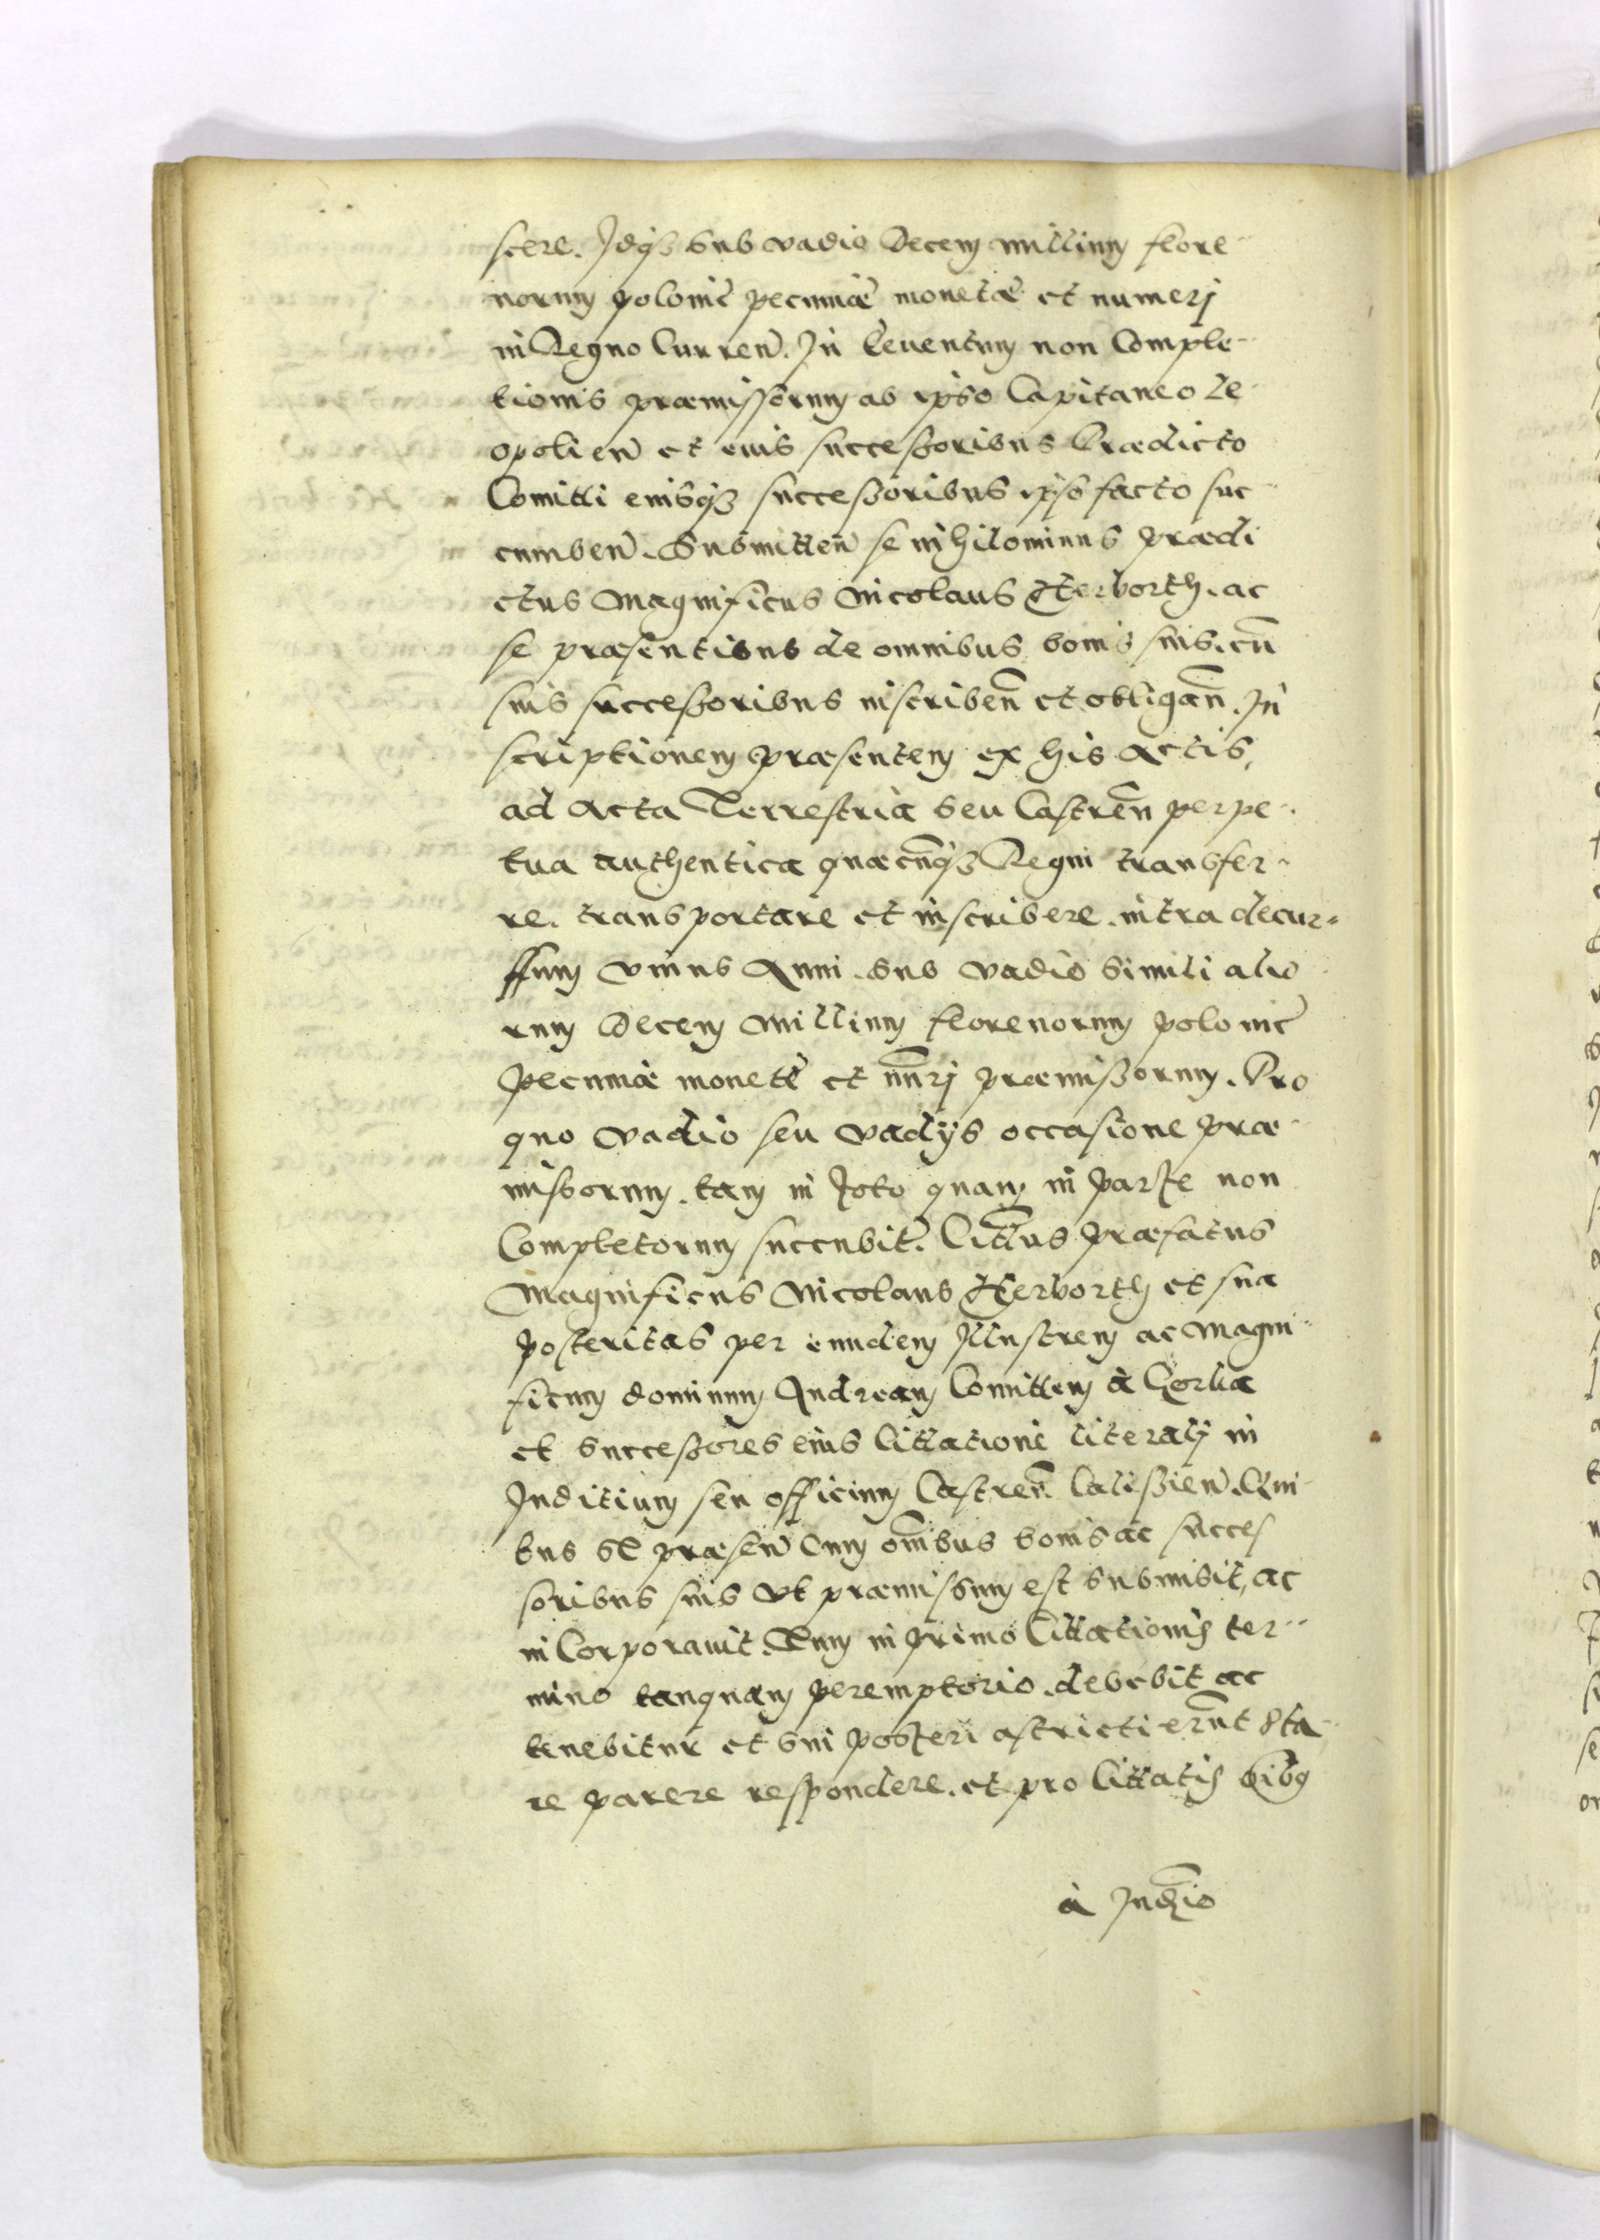 scere. Idq3 sub vadio Decem millium flore-
norum polonic̃ pecuniæ monetæ et numerj
in Regno Curren̄. In Eeuentum non Comple-
tionis præmissorum ab ipso Capitaneo Le-
opolien̄ et euis successoribus Prædicto
Comitti eiusq3 successoribus ipso facto suc-
cumben̄. Submitten̄ se nihilominus prædi
ctus Magnificus Nicolaus Herborth. ac
se præsentibus de omnibus bonis suis. cū
suis successoribus inscriben̄ et obligan̄. In
scriptionem præsentem ex his Actis,
ad Acta Terrestria seu Castren̄ perpe-
tua authentica quæcūq3 Regni transfer-
re. transportare et inscribere. intra decur-
ssum vnius Anni. sub vadio simili alio
rum Decem Millium florenorum polonic̃
Pecuniæ monetę et nūrj præmissorum. Pro
quo vadio seu vadijs occasione præ-
missorum. tam in Toto quam in Parte non
Completorum succubit̃. Cittus Præfatus
Magnificus Nicolaus Herborth et sua
posteritas per eundem Illustrem ac Magni-
ficum dominum Andream Comittem à Gorka
et Successores eius Cittatione literalj in
Inditium seu officium Castren̄ Calissien̄. Qui-
bus se præsen̄ Cum om̄ibus bonis ac succes
soribus suis vt præmissum est submisit, ac
in Corporauit. Tum in Primo Cittationis ter-
mino tanquam peremptorio. debebit ac
tenebitur et sui posteri astricti erūt sta-
re parere respondere. et pro Cittatis oīb9
à Iud̄io